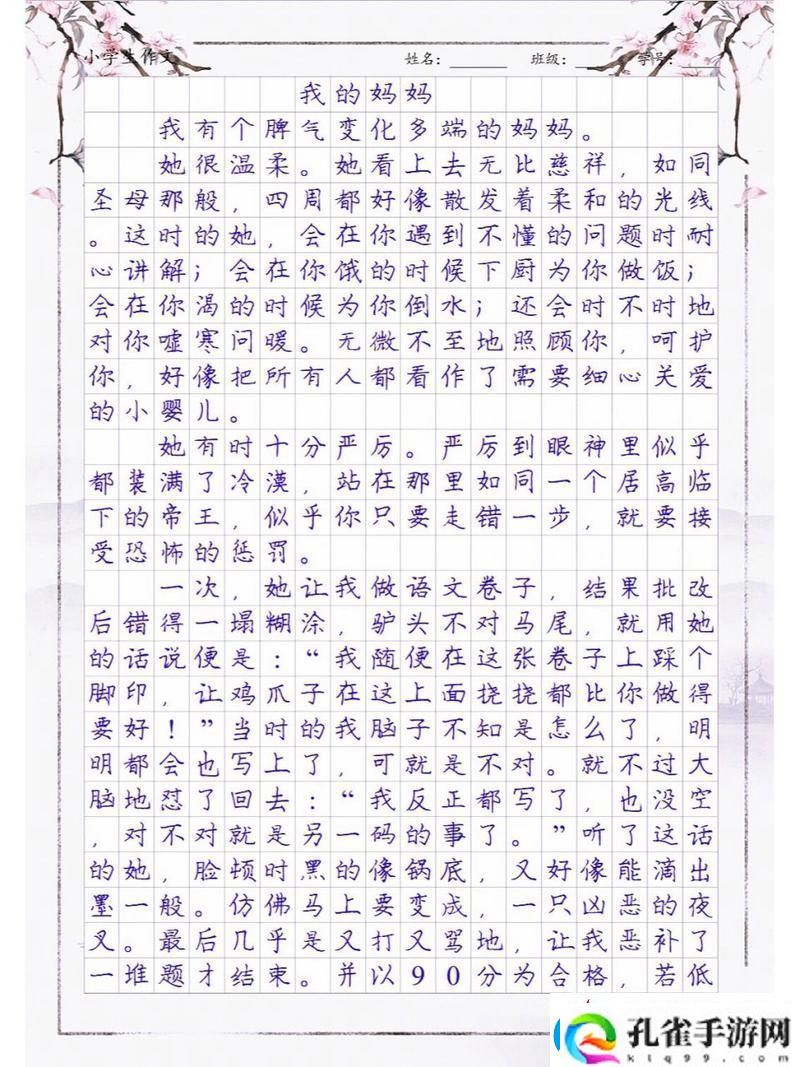 小学生作文
姓名：________ 班级：________ 学号：____
我的妈妈
我有个脾气变化多端的妈妈。
她很温柔。她看上去无比慈祥，如同
圣母那般，四周都好像散发着柔和的光线
。这时的她，会在你遇到不懂的问题时耐
心讲解；会在你饿的时候下厨为你做饭；
会在你渴的时候为你倒水；还会时不时地
对你嘘寒问暖。无微不至地照顾你，呵护
你，好像把所有人都看作了需要细心关爱
的小婴儿。
她有时十分严厉。严厉到眼神里似乎
都装满了冷漠，站在那里如同一个居高临
下的帝王，似乎你只要走错一步，就要接
受恐怖的惩罚。
一次，她让我做语文卷子，结果批改
后错得一塌糊涂，驴头不对马尾，就用她
的话说便是：“我随便在这张卷子上踩个
脚印，让鸡爪子在这上面挠挠都比你做得
要好！”当时的我脑子不知是怎么了，明
明都会也写上了，可就是不对。就不过大
脑地怼了回去：“我反正都写了，也没空
，对不对就是另一码的事了。”听了这话
的她，脸顿时黑的像锅底，又好像能滴出
墨一般。仿佛马上要变成，一只凶恶的夜
叉。最后几乎是又打又骂地，让我恶补了
一堆题才结束。并以90分为合格，若低
孔雀手游网
ktq99.com